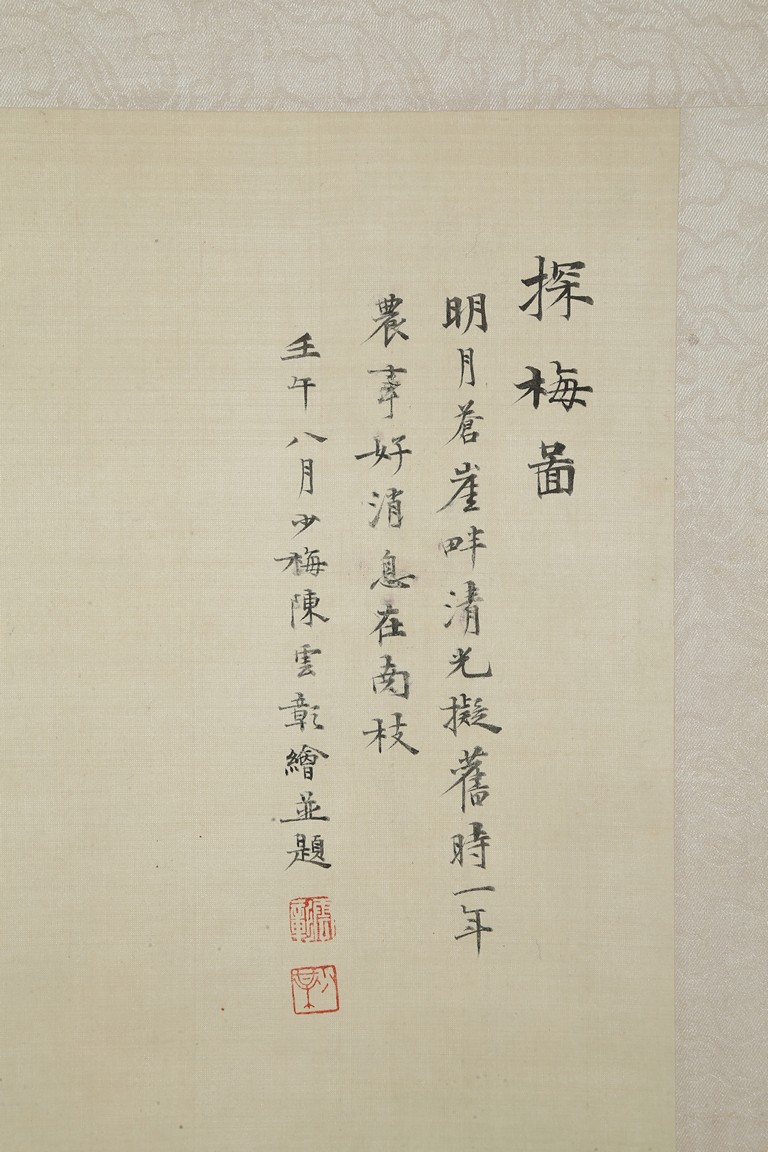 探梅啚
明月蒼崖畔清光擬舊時一年
農事好消息在南枝
壬午八月少梅陳雲彰繪並題
雲彰
少某